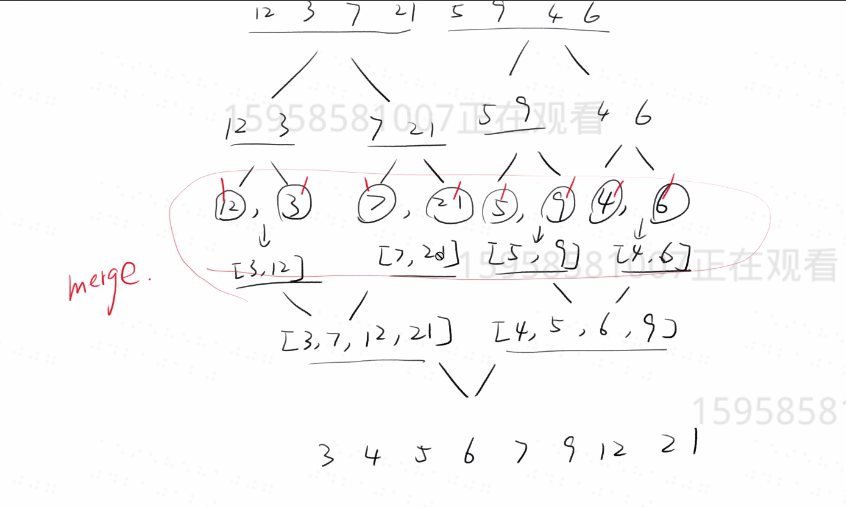 12 3 7 21 5 9 4 6
15958581007正在观看
12 3 7 21 5 9 4 6
12, 3 7, 21 5, 9 4, 6
[3,12] [7,2d] [5,9] [4,6]
15958581007正在观看
merge.
[3,7,12,21] [4,5,6,9]
15958581
3 4 5 6 7 9 12 21